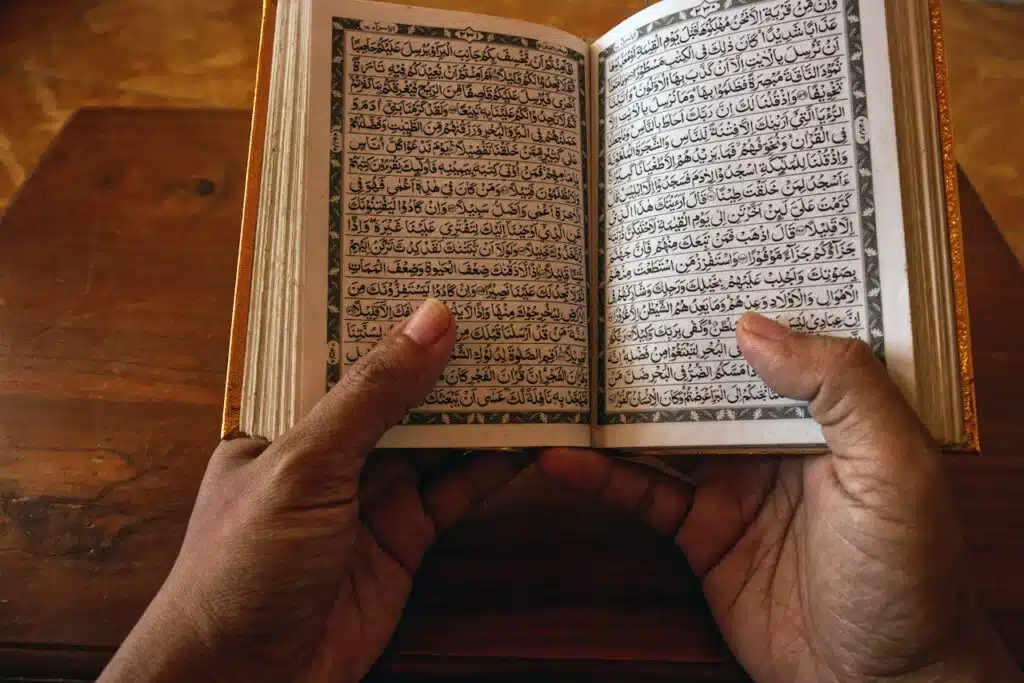 وَاِنْ مِّنْ قَرْيَةٍ اِلَّا نَحْنُ مُهْلِكُوْهَا قَبْلَ يَوْمِ الْقِيٰمَةِ اَوْ مُعَذِّبُوْهَا
عَذَابًا شَدِيْدًا كَانَ ذٰلِكَ فِى الْكِتٰبِ مَسْطُوْرًا وَمَا مَنَعَنَا
اَنْ نُّرْسِلَ بِالْاٰيٰتِ اِلَّا اَنْ كَذَّبَ بِهَا الْاَوَّلُوْنَ وَاٰتَيْنَا
ثَمُوْدَ النَّاقَةَ مُبْصِرَةً فَظَلَمُوْا بِهَا وَمَا نُرْسِلُ بِالْاٰيٰتِ اِلَّا
تَخْوِيْفًا وَاِذْ قُلْنَا لَكَ اِنَّ رَبَّكَ اَحَاطَ بِالنَّاسِ وَمَا جَعَلْنَا
الرُّءْيَا الَّتِىْ اَرَيْنٰكَ اِلَّا فِتْنَةً لِّلنَّاسِ وَالشَّجَرَةَ الْمَلْعُوْنَةَ
فِى الْقُرْاٰنِ وَنُخَوِّفُهُمْ فَمَا يَزِيْدُهُمْ اِلَّا طُغْيَانًا كَبِيْرًا
وَاِذْ قُلْنَا لِلْمَلٰٓئِكَةِ اسْجُدُوْا لِاٰدَمَ فَسَجَدُوْا اِلَّا اِبْلِيْسَ قَالَ
ءَاَسْجُدُ لِمَنْ خَلَقْتَ طِيْنًا قَالَ اَرَءَيْتَكَ هٰذَا الَّذِىْ
كَرَّمْتَ عَلَىَّ لَئِنْ اَخَّرْتَنِ اِلٰى يَوْمِ الْقِيٰمَةِ لَاَحْتَنِكَنَّ ذُرِّيَّتَهٗ
اِلَّا قَلِيْلًا قَالَ اذْهَبْ فَمَنْ تَبِعَكَ مِنْهُمْ فَاِنَّ جَهَنَّمَ
جَزَآؤُكُمْ جَزَآءً مَّوْفُوْرًا وَاسْتَفْزِزْ مَنِ اسْتَطَعْتَ مِنْهُمْ
بِصَوْتِكَ وَاَجْلِبْ عَلَيْهِمْ بِخَيْلِكَ وَرَجِلِكَ وَشَارِكْهُمْ فِى
الْاَمْوَالِ وَالْاَوْلَادِ وَعِدْهُمْ وَمَا يَعِدُهُمُ الشَّيْطٰنُ اِلَّا غُرُوْرًا
اِنَّ عِبَادِىْ لَيْسَ سُلْطٰنٌ وَكَفٰى بِرَبِّكَ وَكِيْلًا
فِى الْبَحْرِ لِتَبْتَغُوْا مِنْ فَضْلِهٖ اِنَّهٗ
مَسَّكُمُ الضُّرُّ فِى الْبَحْرِ ضَلَّ مَنْ
نَجّٰىكُمْ اِلَى الْبَرِّ اَعْرَضْتُمْ وَكَانَ الْاِنْسَانُ كَفُوْرًا
اَفَاَمِنْتُمْ اَنْ يَّخْسِفَ بِكُمْ جَانِبَ الْبَرِّ اَوْ يُرْسِلَ عَلَيْكُمْ حَاصِبًا
ثُمَّ لَا تَجِدُوْا لَكُمْ وَكِيْلًا اَمْ اَمِنْتُمْ اَنْ يُّعِيْدَكُمْ فِيْهِ تَارَةً
اُخْرٰى فَيُرْسِلَ عَلَيْكُمْ قَاصِفًا مِّنَ الرِّيْحِ فَيُغْرِقَكُمْ بِمَا كَفَرْتُمْ
ثُمَّ لَا تَجِدُوْا لَكُمْ عَلَيْنَا بِهٖ تَبِيْعًا وَلَقَدْ كَرَّمْنَا بَنِىْٓ اٰدَمَ وَ
حَمَلْنٰهُمْ فِى الْبَرِّ وَالْبَحْرِ وَرَزَقْنٰهُمْ مِّنَ الطَّيِّبٰتِ وَفَضَّلْنٰهُمْ
عَلٰى كَثِيْرٍ مِّمَّنْ خَلَقْنَا تَفْضِيْلًا يَوْمَ نَدْعُوْا كُلَّ اُنَاسٍ
بِاِمَامِهِمْ فَمَنْ اُوْتِىَ كِتٰبَهٗ بِيَمِيْنِهٖ فَاُولٰٓئِكَ يَقْرَءُوْنَ كِتٰبَهُمْ
وَلَا يُظْلَمُوْنَ فَتِيْلًا وَمَنْ كَانَ فِىْ هٰذِهٖٓ اَعْمٰى فَهُوَ فِى
الْاٰخِرَةِ اَعْمٰى وَاَضَلُّ سَبِيْلًا وَاِنْ كَادُوْا لَيَفْتِنُوْنَكَ
عَنِ الَّذِىْٓ اَوْحَيْنَآ اِلَيْكَ لِتَفْتَرِىَ عَلَيْنَا غَيْرَهٗ وَاِذًا
لَّاتَّخَذُوْكَ خَلِيْلًا وَلَوْلَآ اَنْ ثَبَّتْنٰكَ لَقَدْ كِدْتَّ تَرْكَنُ اِلَيْهِمْ
شَيْئًا قَلِيْلًا اِذًا لَّاَذَقْنٰكَ ضِعْفَ الْحَيٰوةِ وَضِعْفَ الْمَمَاتِ
ثُمَّ لَا تَجِدُ لَكَ عَلَيْنَا نَصِيْرًا وَاِنْ كَادُوْا لَيَسْتَفِزُّوْنَكَ مِنَ
الْاَرْضِ لِيُخْرِجُوْكَ مِنْهَا وَاِذًا لَّا اِلَّا قَلِيْلًا
سُنَّةَ مَنْ قَدْ اَرْسَلْنَا قَبْلَكَ لِسُنَّتِنَا
تَحْوِيْلًا اَقِمِ الصَّلٰوةَ لِدُلُوْكِ
وَقُرْاٰنَ الْفَجْرِ اِنَّ قُرْاٰنَ الْفَجْرِ كَانَ
فَتَهَجَّدْ بِهٖ نَافِلَةً لَّكَ عَسٰٓى اَنْ يَّبْعَثَكَ